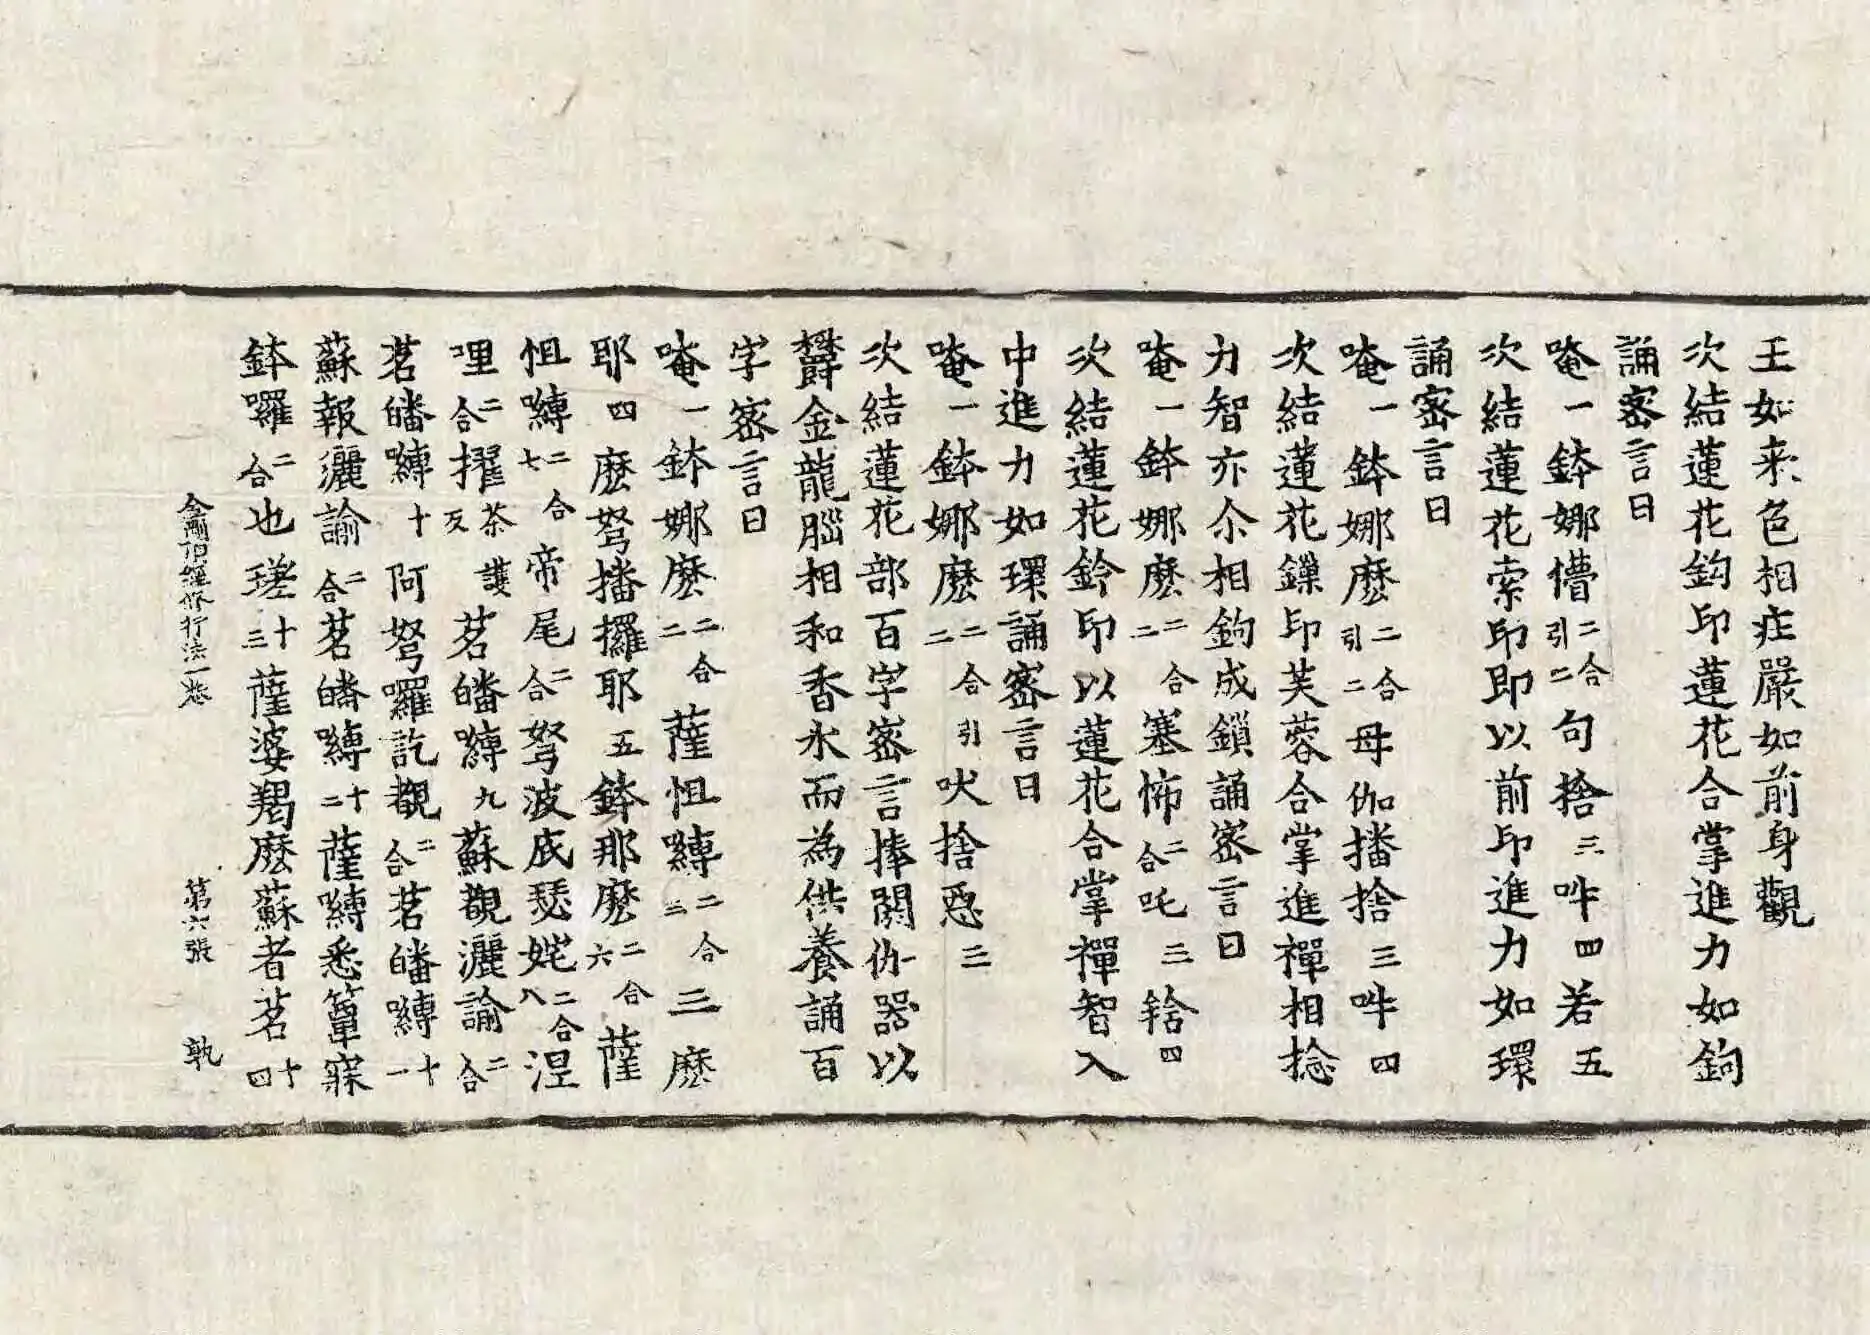 王如来色相疘嚴如前身觀
次結蓮花鈎印蓮花合掌進力如鉤
誦密言曰
唵一鉢娜懵二合引二句捨三吽四若五
次結蓮花索印即以前印進力如環
誦密言曰
唵一鉢娜麽二合引二母伽播捨三吽四
次結蓮花鏁印芙蓉合掌進禪相捻
力智亦尒相鉤成鎖誦密言曰
唵一鉢娜麽二合二塞怖二合吒三鎋四
次結蓮花鈴印以蓮花合掌禪智入
中進力如環誦密言曰
唵一鉢娜麽二合引二吠捨惡三
次結蓮花部百字密言捧閼伽器以
欝金龍腦相和香水而為供養誦百
字密言曰
唵一鉢娜麽二合二薩怛嚩二合三三麽
耶四麽努播攞耶五鉢那麽二合六薩
怛嚩二合七帝尾二合努波底瑟姹二合八涅
哩二合擢茶護反茗皤嚩九蘇覩灑諭二合
茗皤嚩十阿努囉訖覩二合茗皤嚩十一
蘇報灑諭二合茗皤嚩十二薩嚩悉簞寐
鉢囉二合也瑳十三薩婆羯麽蘇者茗十四
金剛頂經修行法一卷 第六張 孰